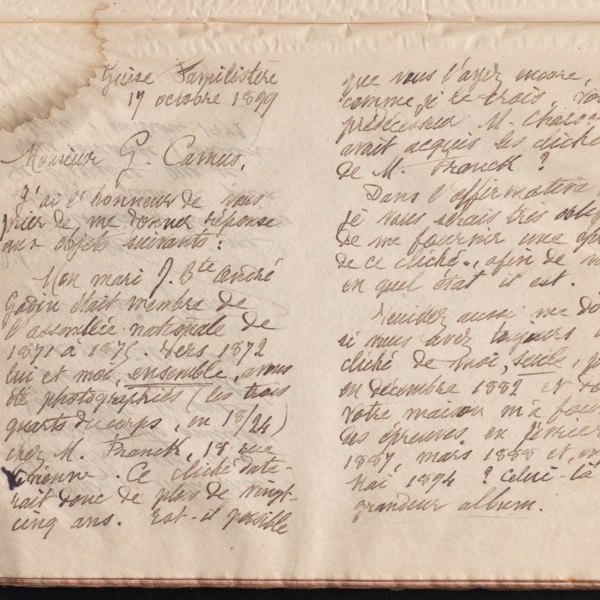 Guise Familistère
17 octobre 1899
Monsieur G. Camus,
J'ai l'honneur de vous
prier de me donner réponse
aux objets suivants :
Mon mari J. Bte André
Godin était membre de
l'assemblée nationale de
1871 à 1876. Vers 1872
lui et moi, ensemble, avons
été photographiés (les trois
quarts du corps, en 18/24)
chez M. Franck, 18 rue
Vivienne. Ce cliché date-
rait donc de plus de vingt-
cinq ans. Est-il possible
que vous l'ayez encore,
comme je le crois,
prédécesseur M. Chalo
avait acquis les cliché
de M. Franck ?
Dans l'affirmative
je vous serais très obli
de me fournir une ép
de ce cliché, afin de
en quel état il est.
Veuillez aussi me d
si vous avez toujours
cliché de moi, seule, p
en décembre 1882 et do
votre maison m'a four
des épreuves en février
1887, mars 1888 et, en
Mai 1894 ? Celui-là
grandeur album.